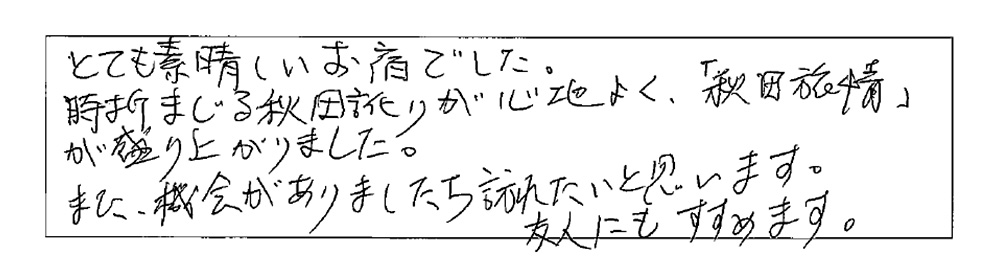 とても素晴しいお宿でした。
時折まじる秋田訛りが心地よく、「秋田旅情」
が盛り上がりました。
また、機会がありましたら訪れたいと思います。
友人にもすすめます。